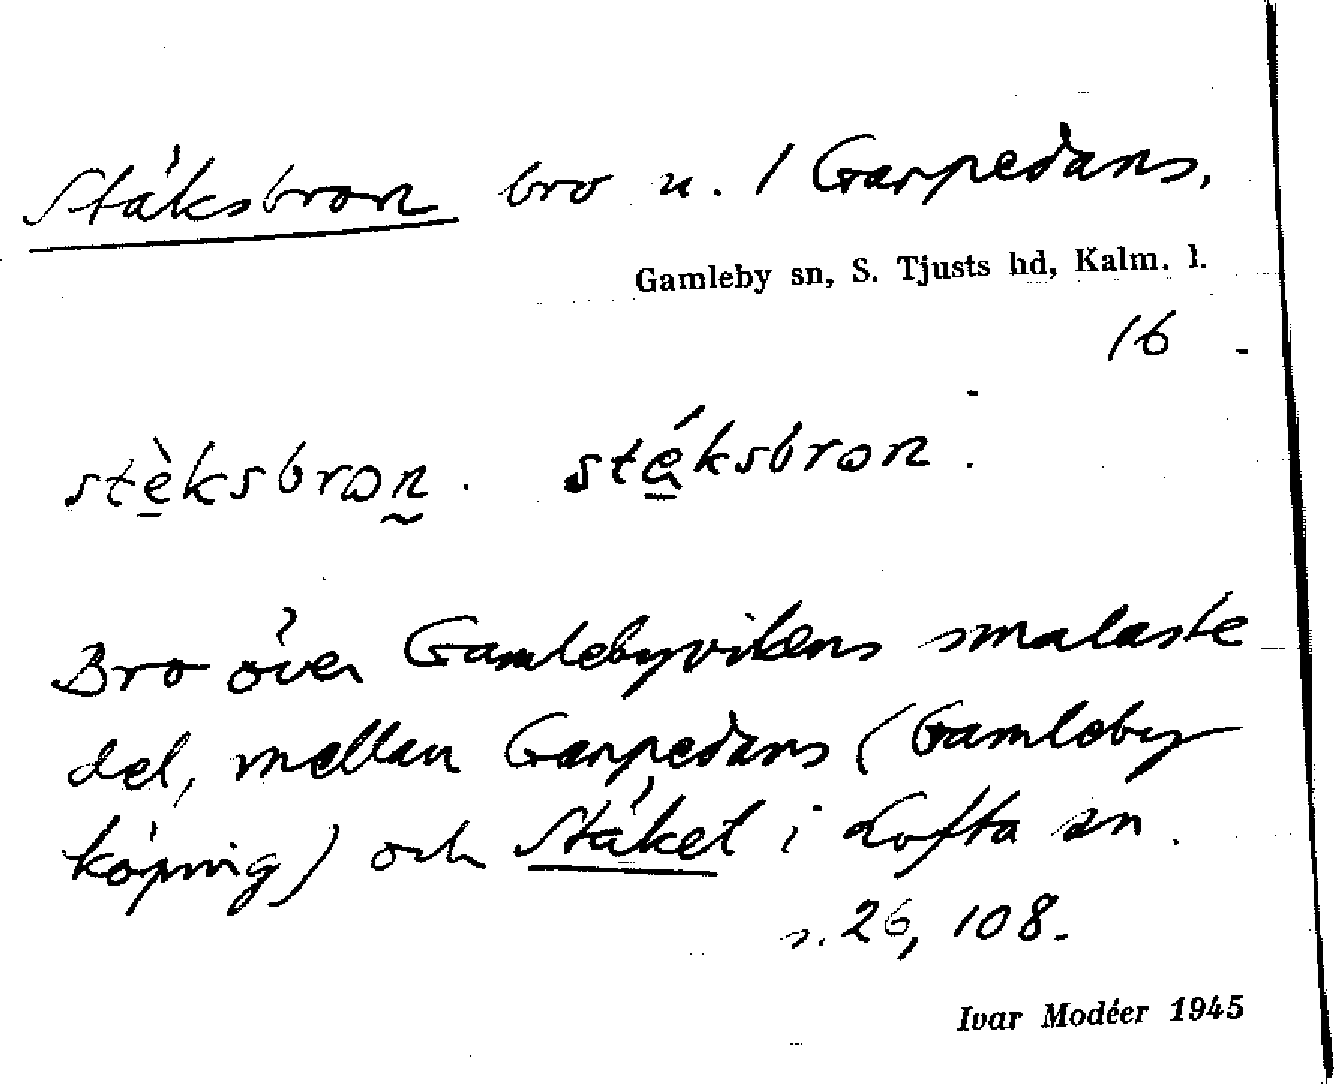 Stäksbron bro u. 1 Garpedans,
Gamleby sn, S. Tjusts hd, Kalm. l.
16
stèksbron. stéksbron.
Bro över Gamlebyvikens smalaste
del, mellan Garpedans (Gamleby
köping) och Stäket i Lofta sn.
s. 26, 108.
Ivar Modéer 1945